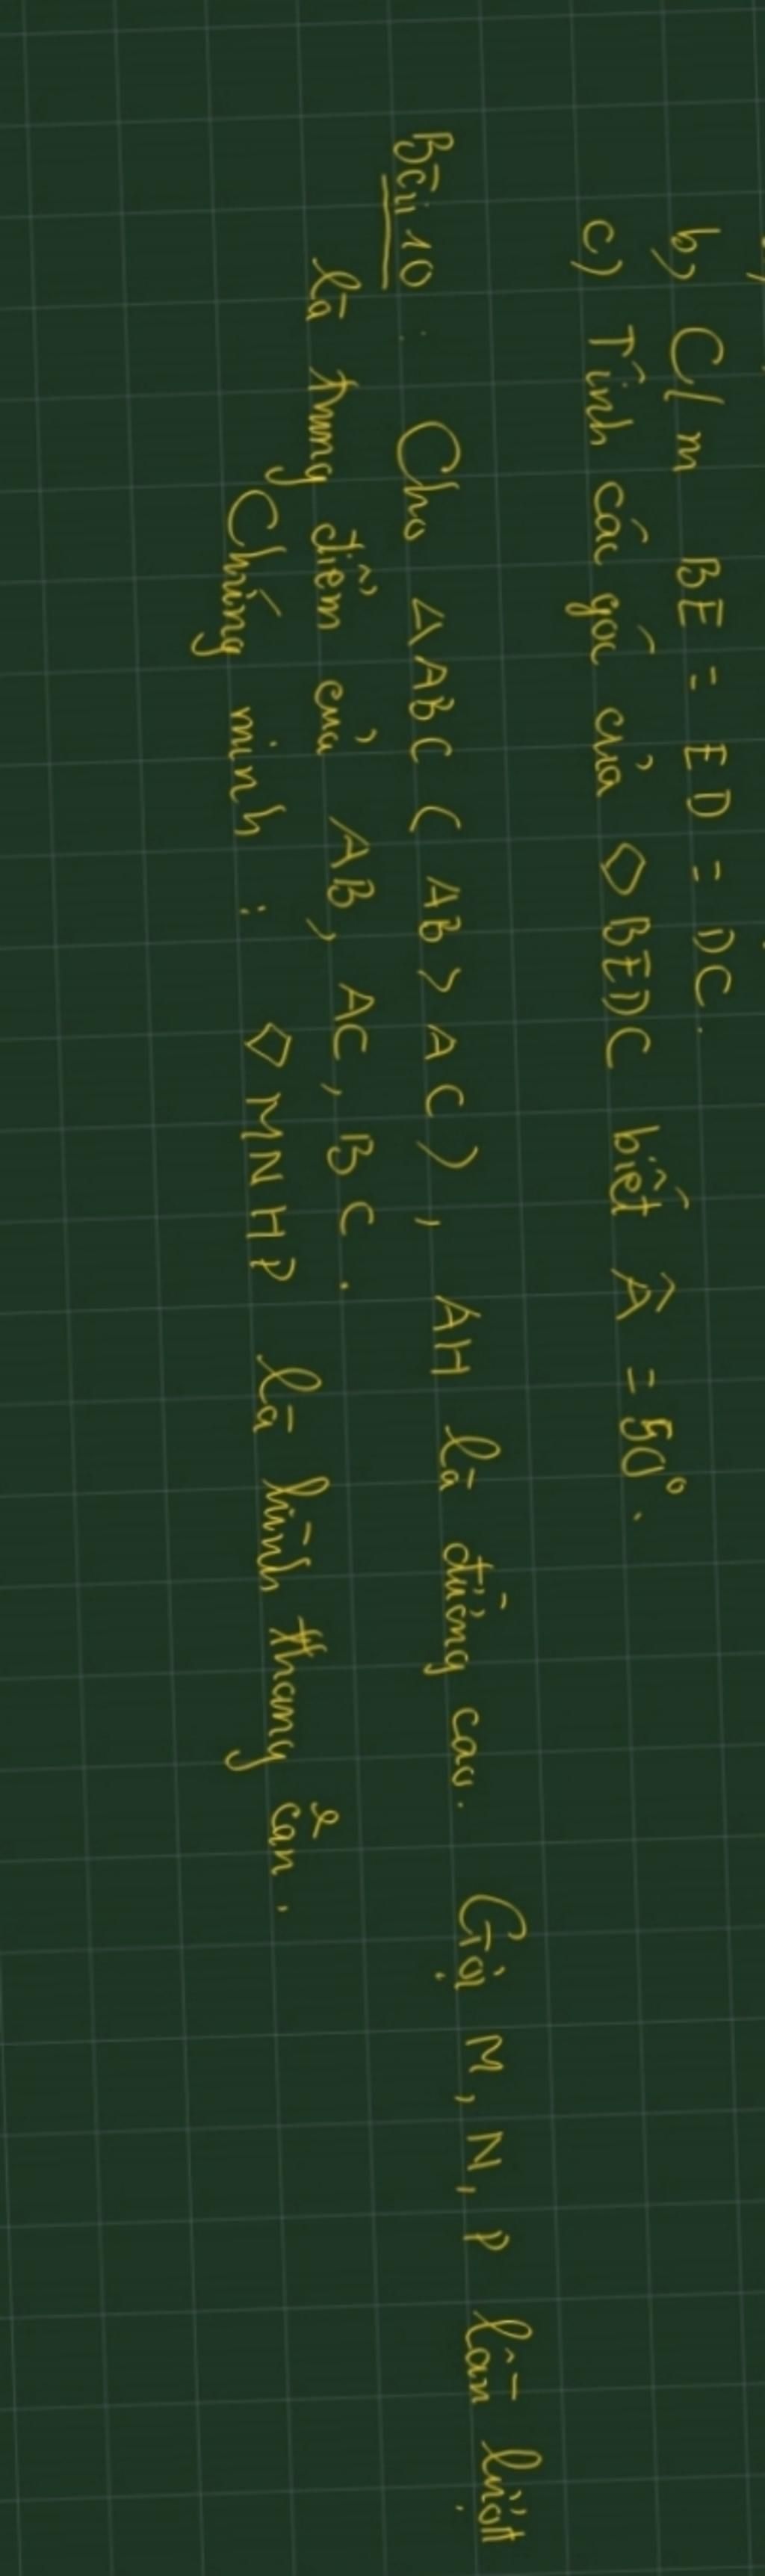 b) C/m BE = ED = DC.
c) Tính các góc của ◇BEDC biết Â = 50°.
Bài 10 : Cho ΔABC ( AB > AC ) , AH là đường cao. Gọi M, N, P lần lượt
là trung điểm của AB, AC, BC.
Chứng minh : ◇MNHP là hình thang cân.